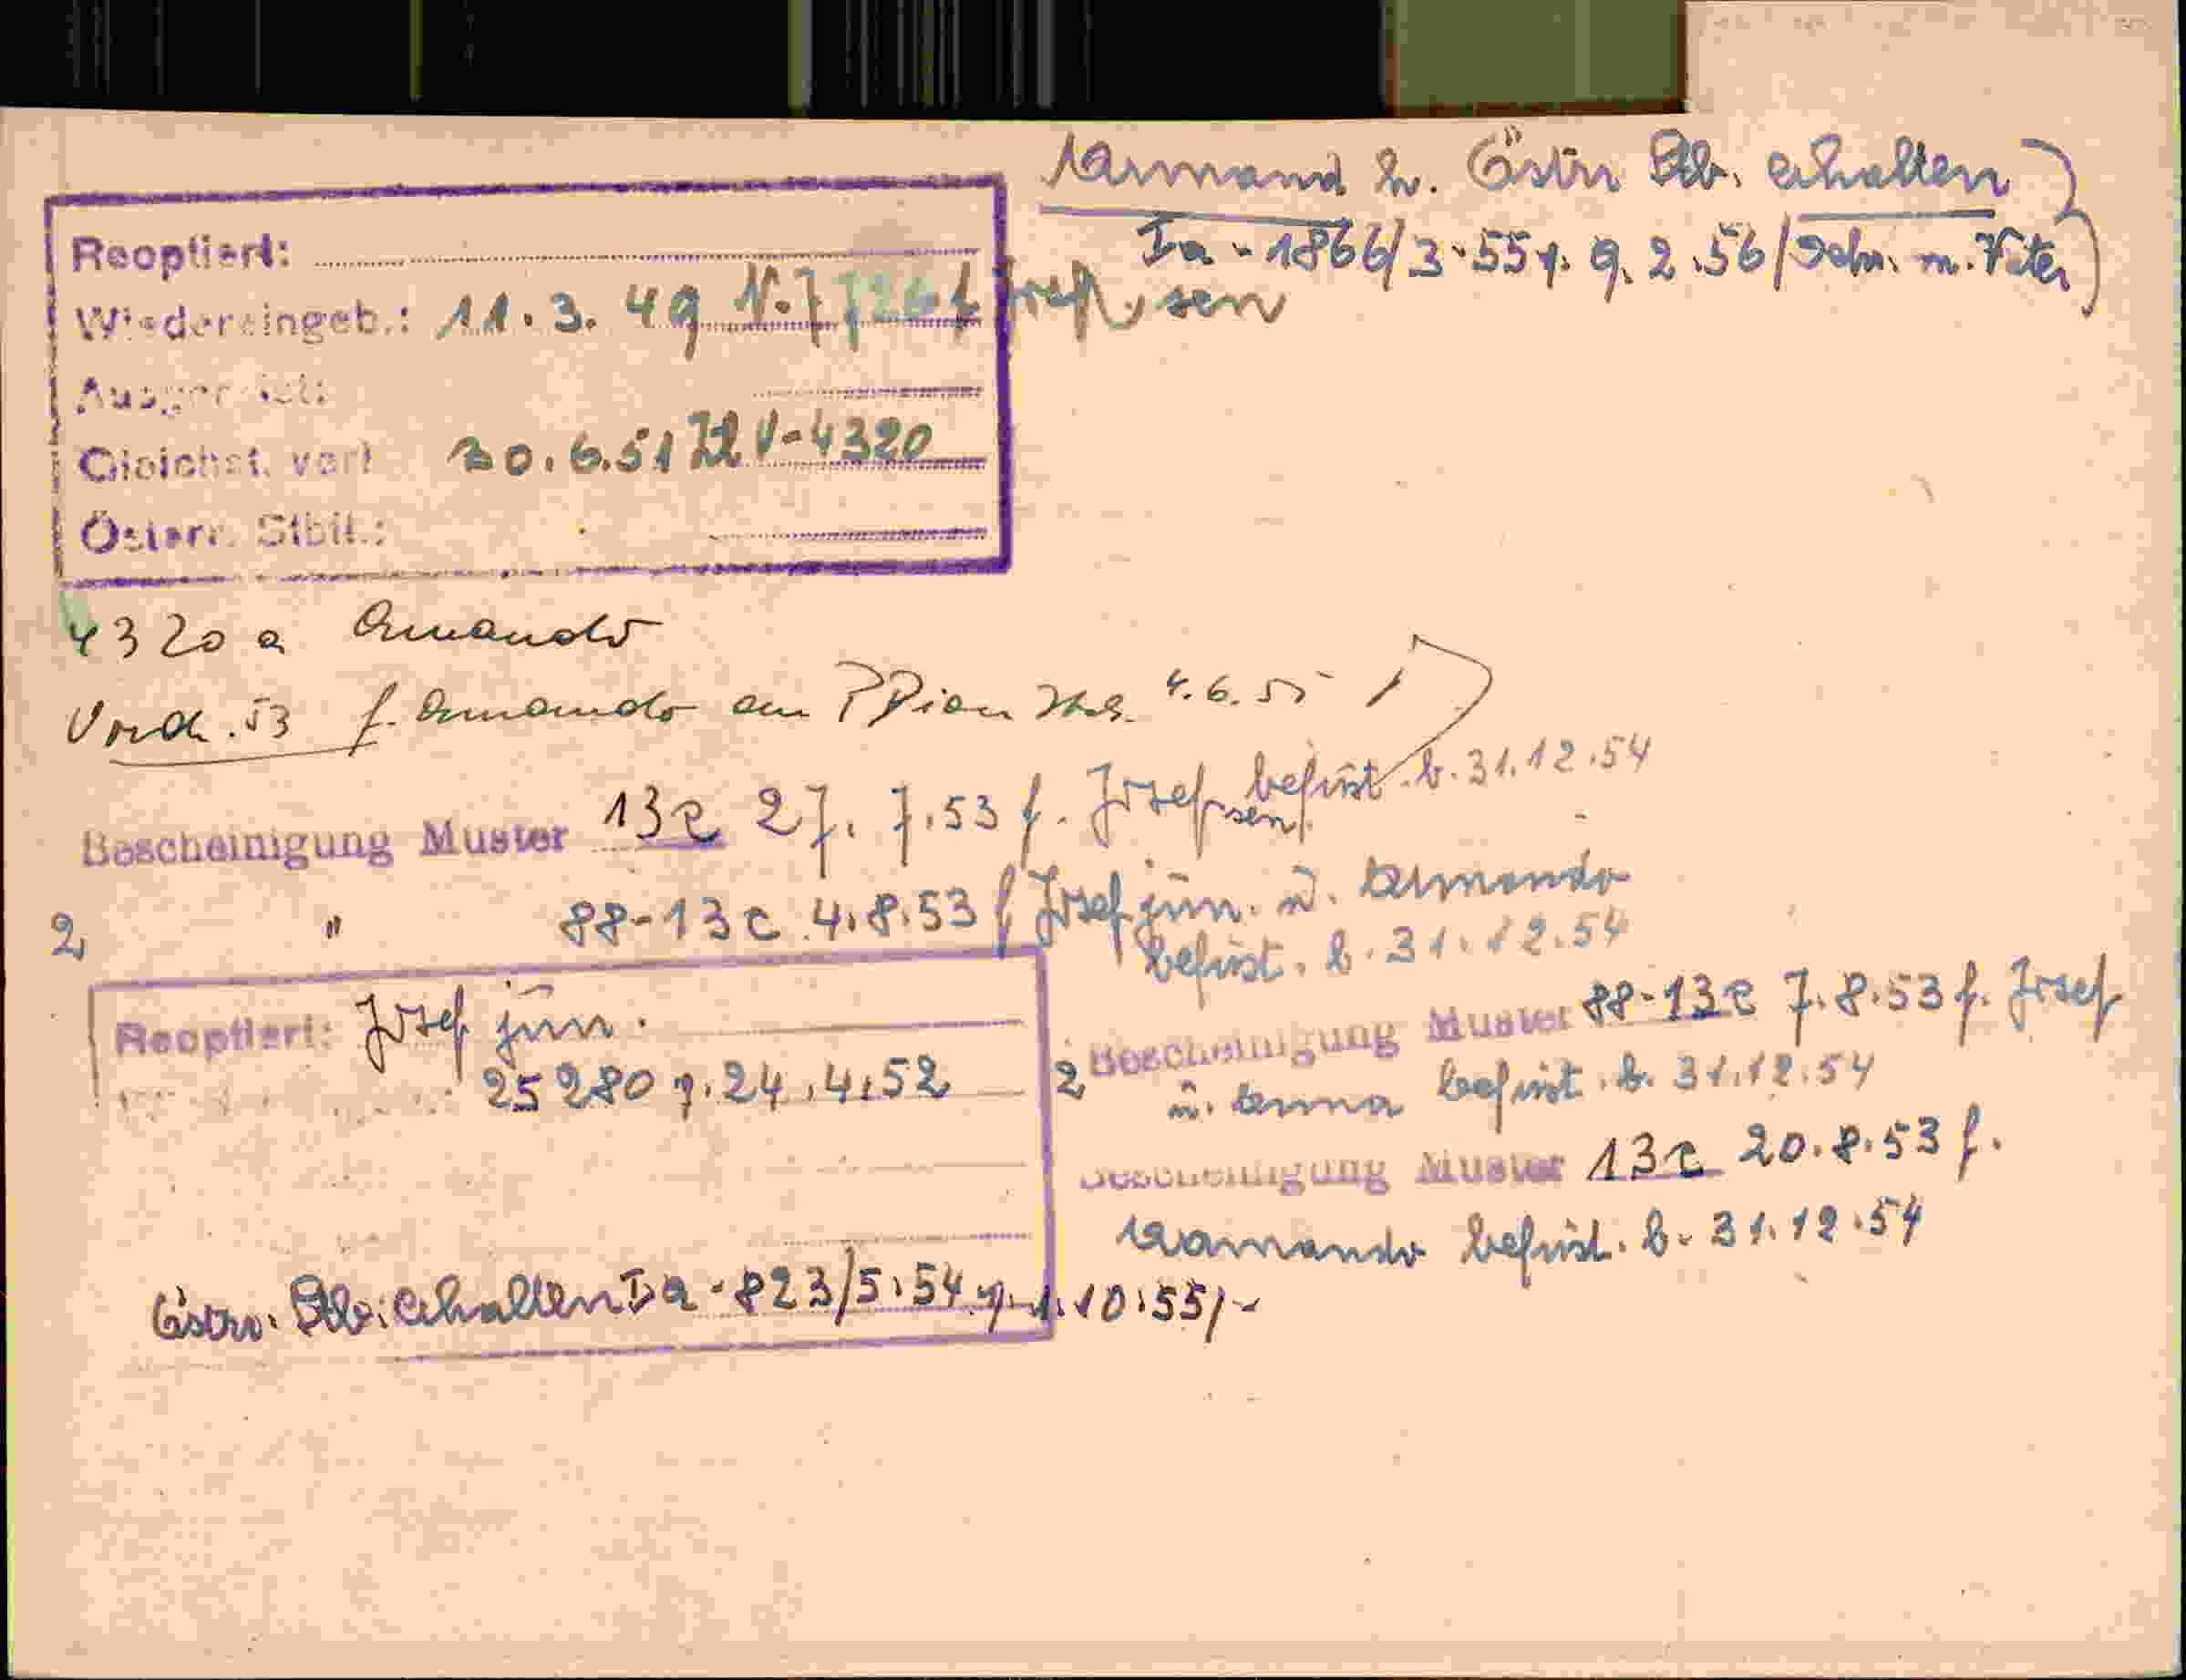 Armand h. Östr. Stb. erhalten
Ia-1866/3-55 v. 9.2.56/ Schn. m. Vater
Reoptiert:
Wiedereingeb.: 11.3.49 N.7 f. Josef sen
Ausgereist:
Gleichst. verl. 20.6.51 V-4320
Österr. Stbll.:
4320 a Armando
f. Armando am 4.6.55
Bescheinigung Muster 13c 27.7.53 f. Josef sen. befrist. b. 31.12.54
2 " 88-13c 4.8.53 f Josef jun. u. Armando
befrist. b. 31.12.54
Reoptiert: Josef jun.
25280 v. 24.4.52
Östr. Stb. erhalten Ia-823/5.54 v. 1.10.55/-
2 Bescheinigung Muster 88-13c 7.8.53 f. Josef
u. Anna befrist. b. 31.12.54
Bescheinigung Muster 13c 20.8.53 f.
Armando befrist. b. 31.12.54